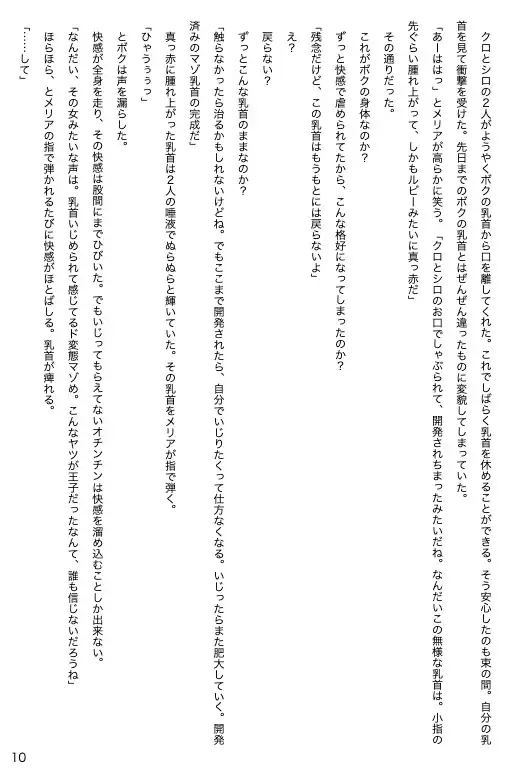 クロとシロの２人がようやくボクの乳首から口を離してくれた。これでしばらく乳首を休めることができる。そう安心したのも束の間。自分の乳
首を見て衝撃を受けた。先日までのボクの乳首とはぜんぜん違ったものに変貌してしまっていた。
「あーははっ」とメリアが高らかに笑う。「クロとシロのお口でしゃぶられて、開発されちまったみたいだね。なんだいこの無様な乳首は。小指の
先ぐらい腫れ上がって、しかもルビーみたいに真っ赤だ」
その通りだった。
これがボクの身体なのか？
ずっと快感で虐められてたから、こんな格好になってしまったのか？
「残念だけど、この乳首はもうもとには戻らないよ」
え？
戻らない？
ずっとこんな乳首のままなのか？
「触らなかったら治るかもしれないけどね。でもここまで開発されたら、自分でいじりたくって仕方なくなる。いじったらまた肥大していく。開発
済みのマゾ乳首の完成だ」
真っ赤に腫れ上がった乳首は２人の唾液でぬらぬらと輝いていた。その乳首をメリアが指で弾く。
「ひゃうぅぅっ」
とボクは声を漏らした。
快感が全身を走り、その快感は股間にまでひびいた。でもいじってもらえてないオチンチンは快感を溜め込むことしか出来ない。
「なんだい、その女みたいな声は。乳首いじめられて感じてるド変態マゾめ。こんなヤツが王子だったなんて、誰も信じないだろうね」
ほらほら、とメリアの指で弾かれるたびに快感がほとばしる。乳首が痺れる。
「……して」
10